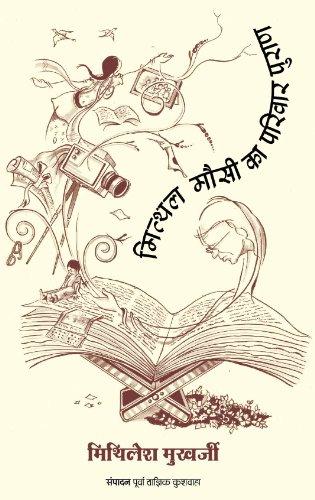 मित्थल मौसी का परिवार पुराण
मिथिलेश मुखर्जी
संपादन पूर्वा याज्ञिक कुशवाहा